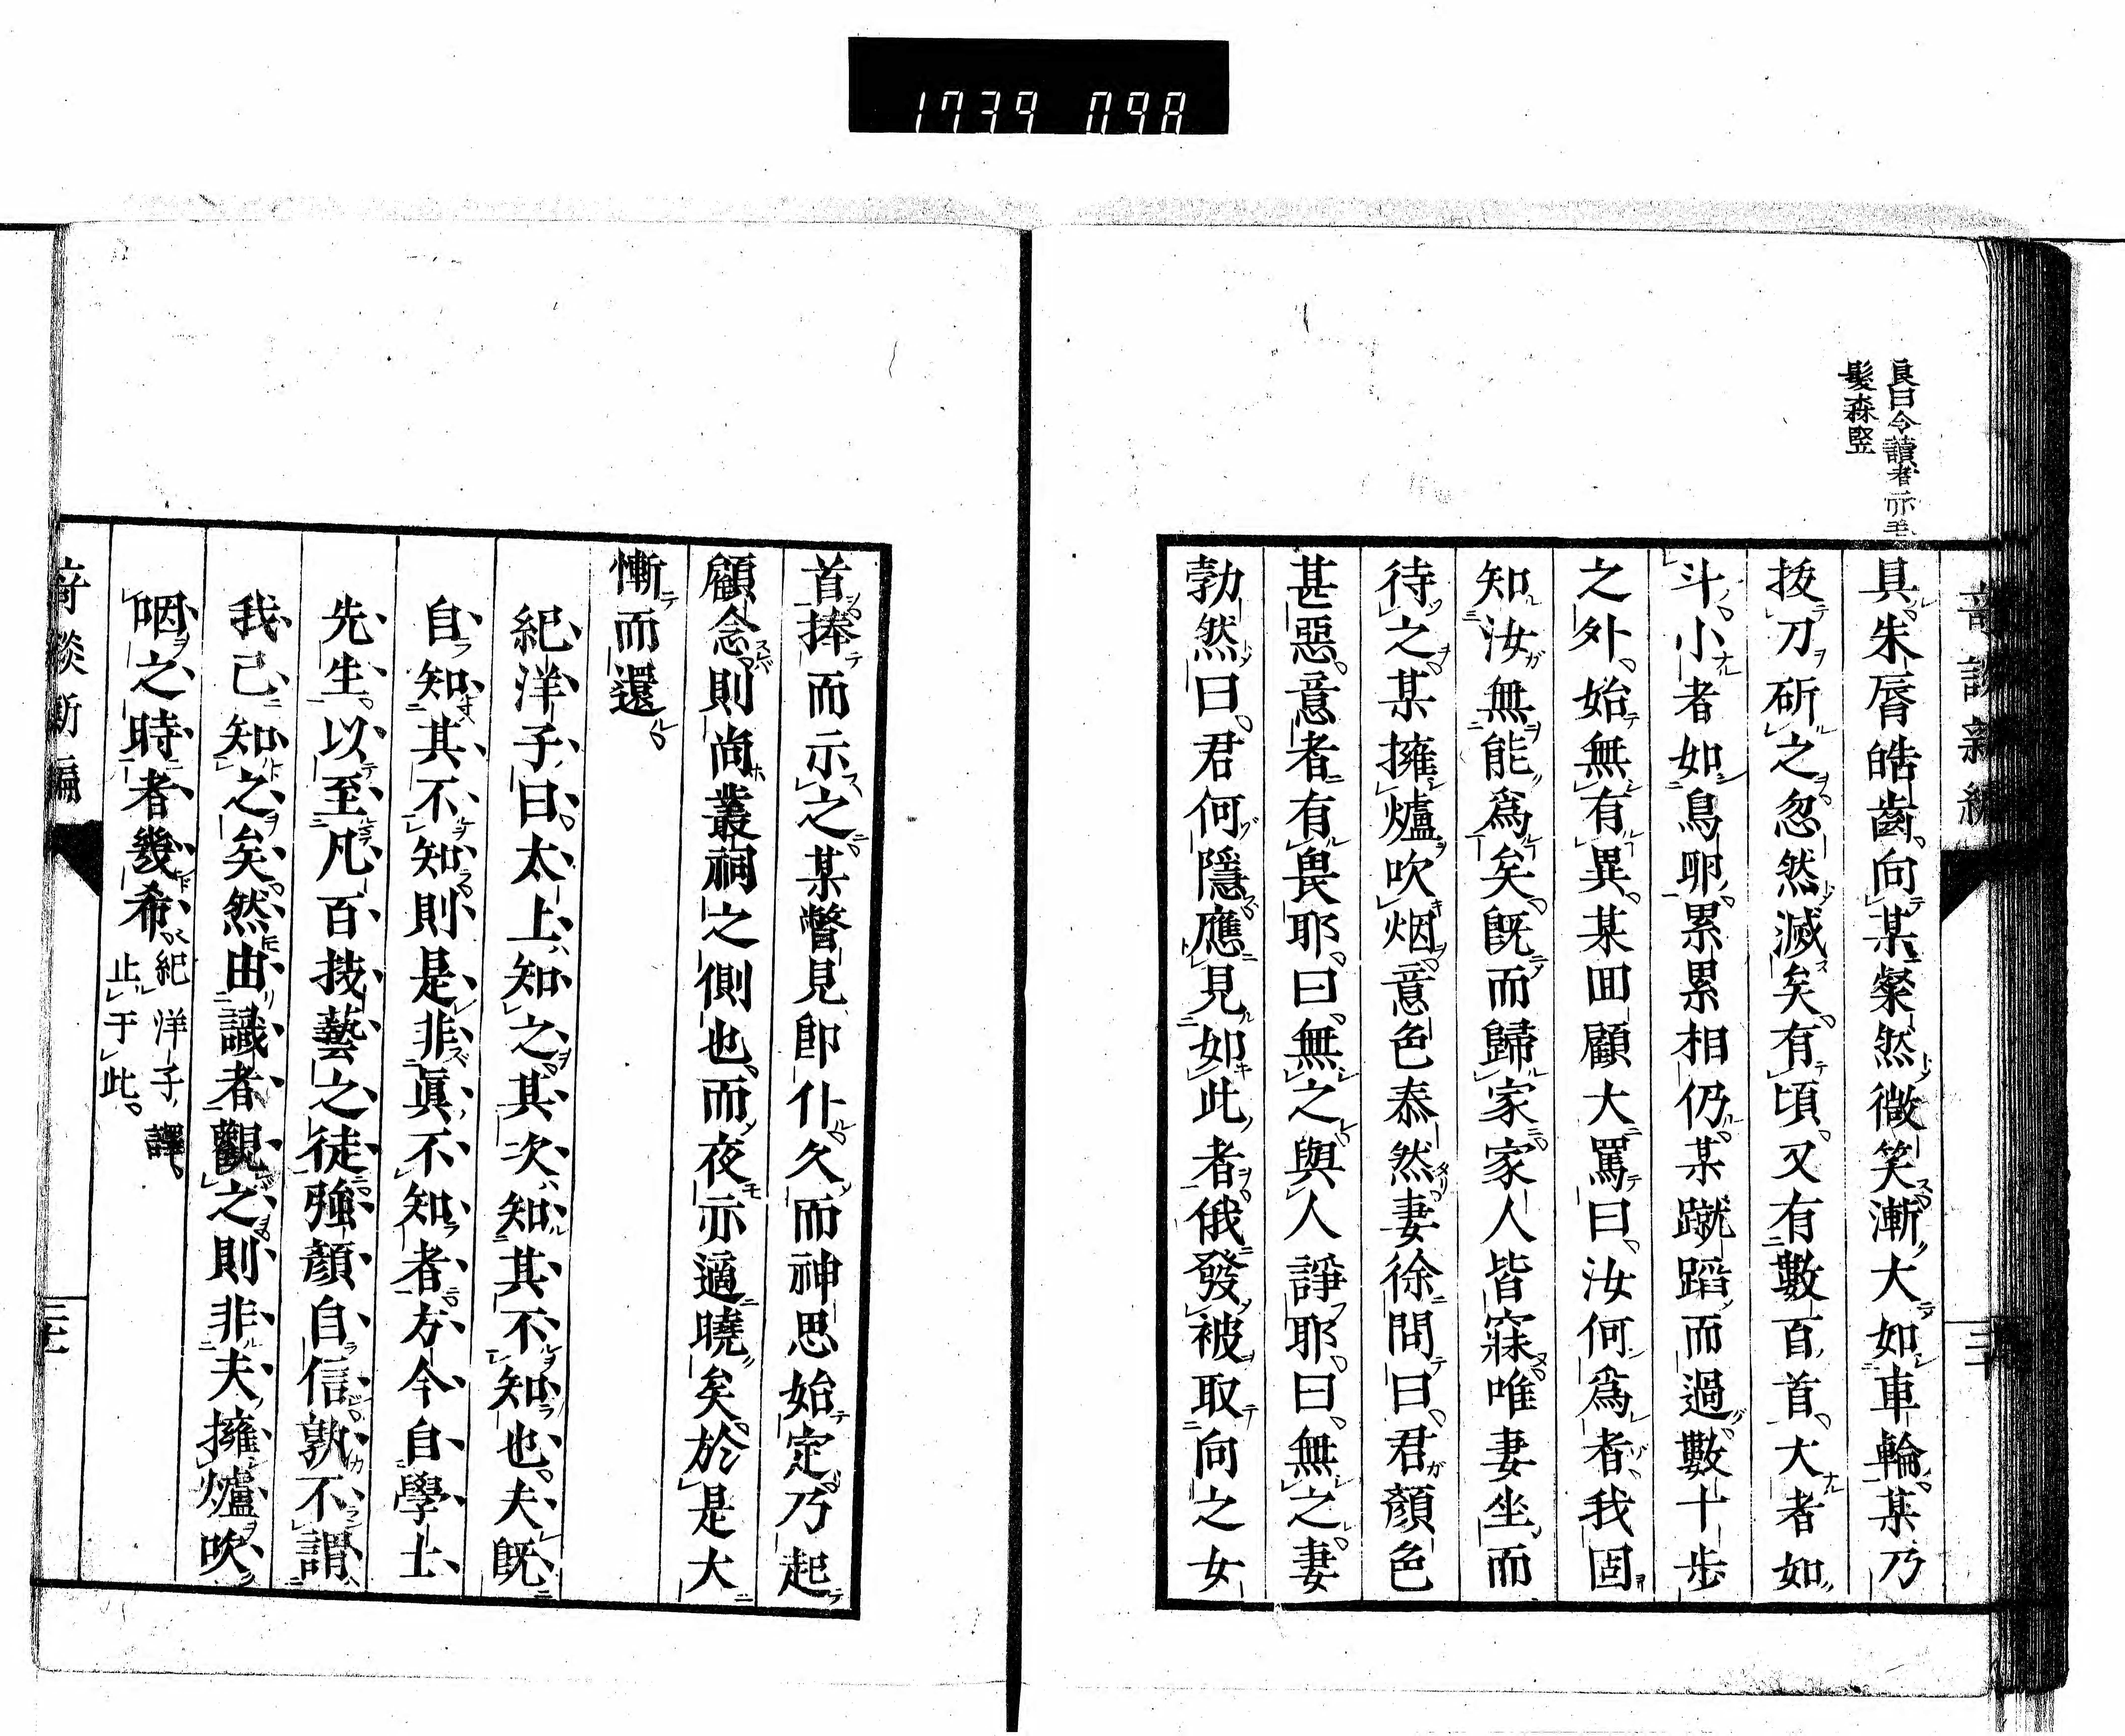 1739 098
良曰令讀者亦毛
髮森竪
具朱脣皓齒向某粲然微笑漸大如車輪某乃
拔刀斫之忽然滅矣有頃又有數百首大者如
斗小者如鳥卵累累相仍某蹴蹈而過數十步
之外始無有異某回顧大罵曰汝何爲者我固
知汝無能爲矣旣而歸家家人皆寐唯妻坐而
待之某擁爐吹烟意色泰然妻徐問曰君顏色
甚惡意者有畏耶曰無之與人諍耶曰無之妻
勃然曰君何隱應見如此者俄發被取向之女
首捧而示之某瞥見卽仆久而神思始定乃起
顧念則尚叢祠之側也而夜亦適曉矣於是大
慚而還
紀洋子曰太上知之其次知其不知也夫旣
自知其不知則是非眞不知者方今自學士
先生以至凡百技藝之徒強顏自信孰不謂
我已知之矣然由識者觀之則非夫擁爐吹
咽之時者幾希紀洋子譯
止于此